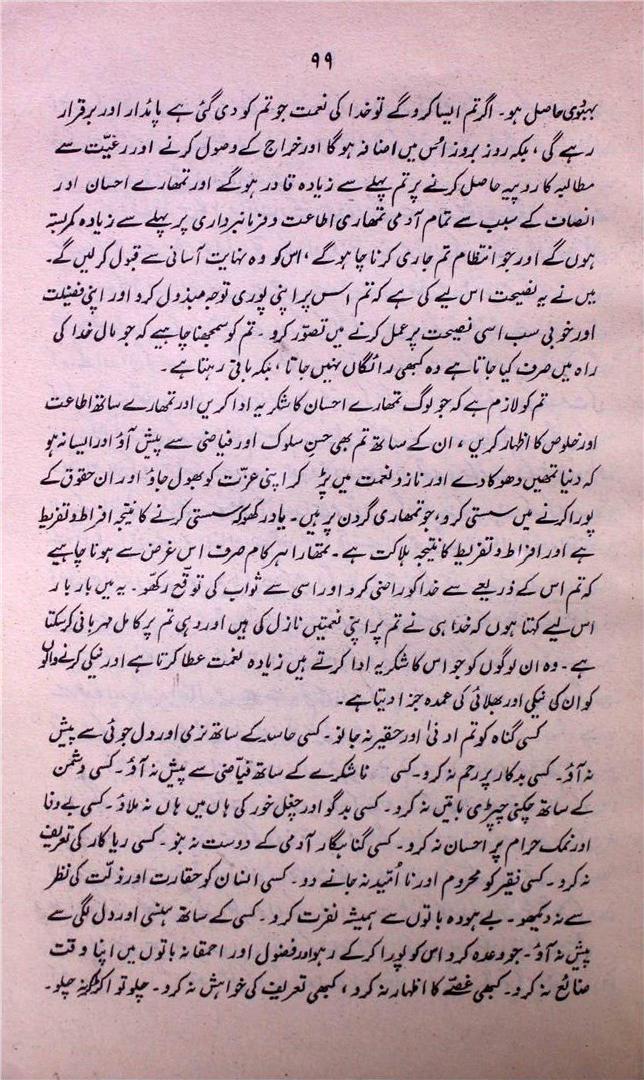 ۹۹
بہبودی حاصل ہو۔ اگر تم ایسا کرو گے تو خدا کی نعمت جو تم کو دی گئی ہے پائدار اور برقرار
رہے گی، بلکہ روز بروز اس میں اضافہ ہوگا اور خراج کے وصول کرنے اور رعیّت سے
مطالبہ کا روپیہ حاصل کرنے پر تم پہلے سے زیادہ قادر ہوگے اور تمھارے احسان اور
انصاف کے سبب سے تمام آدمی تمھاری اطاعت و فرمانبرداری پر پہلے سے زیادہ کمربستہ
ہوں گے اور جو انتظام تم جاری کرنا چاہو گے، اس کو وہ نہایت آسانی سے قبول کرلیں گے۔
میں نے یہ نصیحت اس لیے کی ہے کہ تم اس پر اپنی پوری توجہ مبذول کرو اور اپنی فضیلت
اور خوبی سب اسی نصیحت پر عمل کرنے میں تصوّر کرو۔ تم کو سمجھنا چاہیے کہ جو مال خدا کی
راہ میں صرف کیا جاتا ہے وہ کبھی رائگاں نہیں جاتا، بلکہ باقی رہتا ہے۔
تم کو لازم ہے کہ جو لوگ تمھارے احسان کا شکریہ ادا کریں اور تمھارے ساتھ اطاعت
اور خلوص کا اظہار کریں، ان کے ساتھ تم بھی حسنِ سلوک اور فیاضی سے پیش آؤ اور ایسا نہ ہو
کہ دنیا تمھیں دھوکا دے اور ناز و نعمت میں پڑ کر اپنی عزّت کو بھول جاؤ اور ان حقوق کے
پورا کرنے میں سستی کرو، جو تمھاری گردن پر ہیں۔ یاد رکھو کہ سستی کرنے کا نتیجہ افراط و تفریط
ہے اور افراط و تفریط کا نتیجہ ہلاکت ہے۔ تمھارا ہر کام صرف اس غرض سے ہونا چاہیے
کہ تم اس کے ذریعے سے خدا کو راضی کرو اور اسی سے ثواب کی توقع رکھو۔ یہ میں بار بار
اس لیے کہتا ہوں کہ خدا ہی نے تم پر اپنی نعمتیں نازل کی ہیں اور وہی تم پر کامل مہربانی کرسکتا
ہے۔ وہ ان لوگوں کو جو اس کا شکریہ ادا کرتے ہیں زیادہ نعمت عطا کرتا ہے اور نیکی کرنے والوں
کو ان کی نیکی اور بھلائی کی عمدہ جزا دیتا ہے۔
کسی گناہ کو تم ادنیٰ اور حقیر نہ جانو۔ کسی حاسد کے ساتھ نرمی اور دل جوئی سے پیش
نہ آؤ۔ کسی بدکار پر رحم نہ کرو۔ کسی ناشکرے کے ساتھ فیّاضی سے پیش نہ آؤ۔ کسی دشمن
کے ساتھ چکنی چپڑی باتیں نہ کرو۔ کسی بدگو اور چغل خور کی ہاں میں ہاں نہ ملاؤ۔ کسی بے وفا
اور نمک حرام پر احسان نہ کرو۔ کسی گناہگار آدمی کے دوست نہ بنو۔ کسی ریاکار کی تعریف
نہ کرو۔ کسی فقیر کو محروم اور نا اُمّید نہ جانے دو۔ کسی انسان کو حقارت اور ذلّت کی نظر
سے نہ دیکھو۔ بے ہودہ باتوں سے ہمیشہ نفرت کرو۔ کسی کے ساتھ ہنسی اور دل لگی سے
پیش نہ آؤ۔ جو وعدہ کرو اس کو پورا کرکے رہو اور فضول اور احمقانہ باتوں میں اپنا وقت
ضائع نہ کرو۔ کبھی غصّے کا اظہار نہ کرو، کبھی تعریف کی خواہش نہ کرو۔ چلو تو اکڑ کر نہ چلو۔